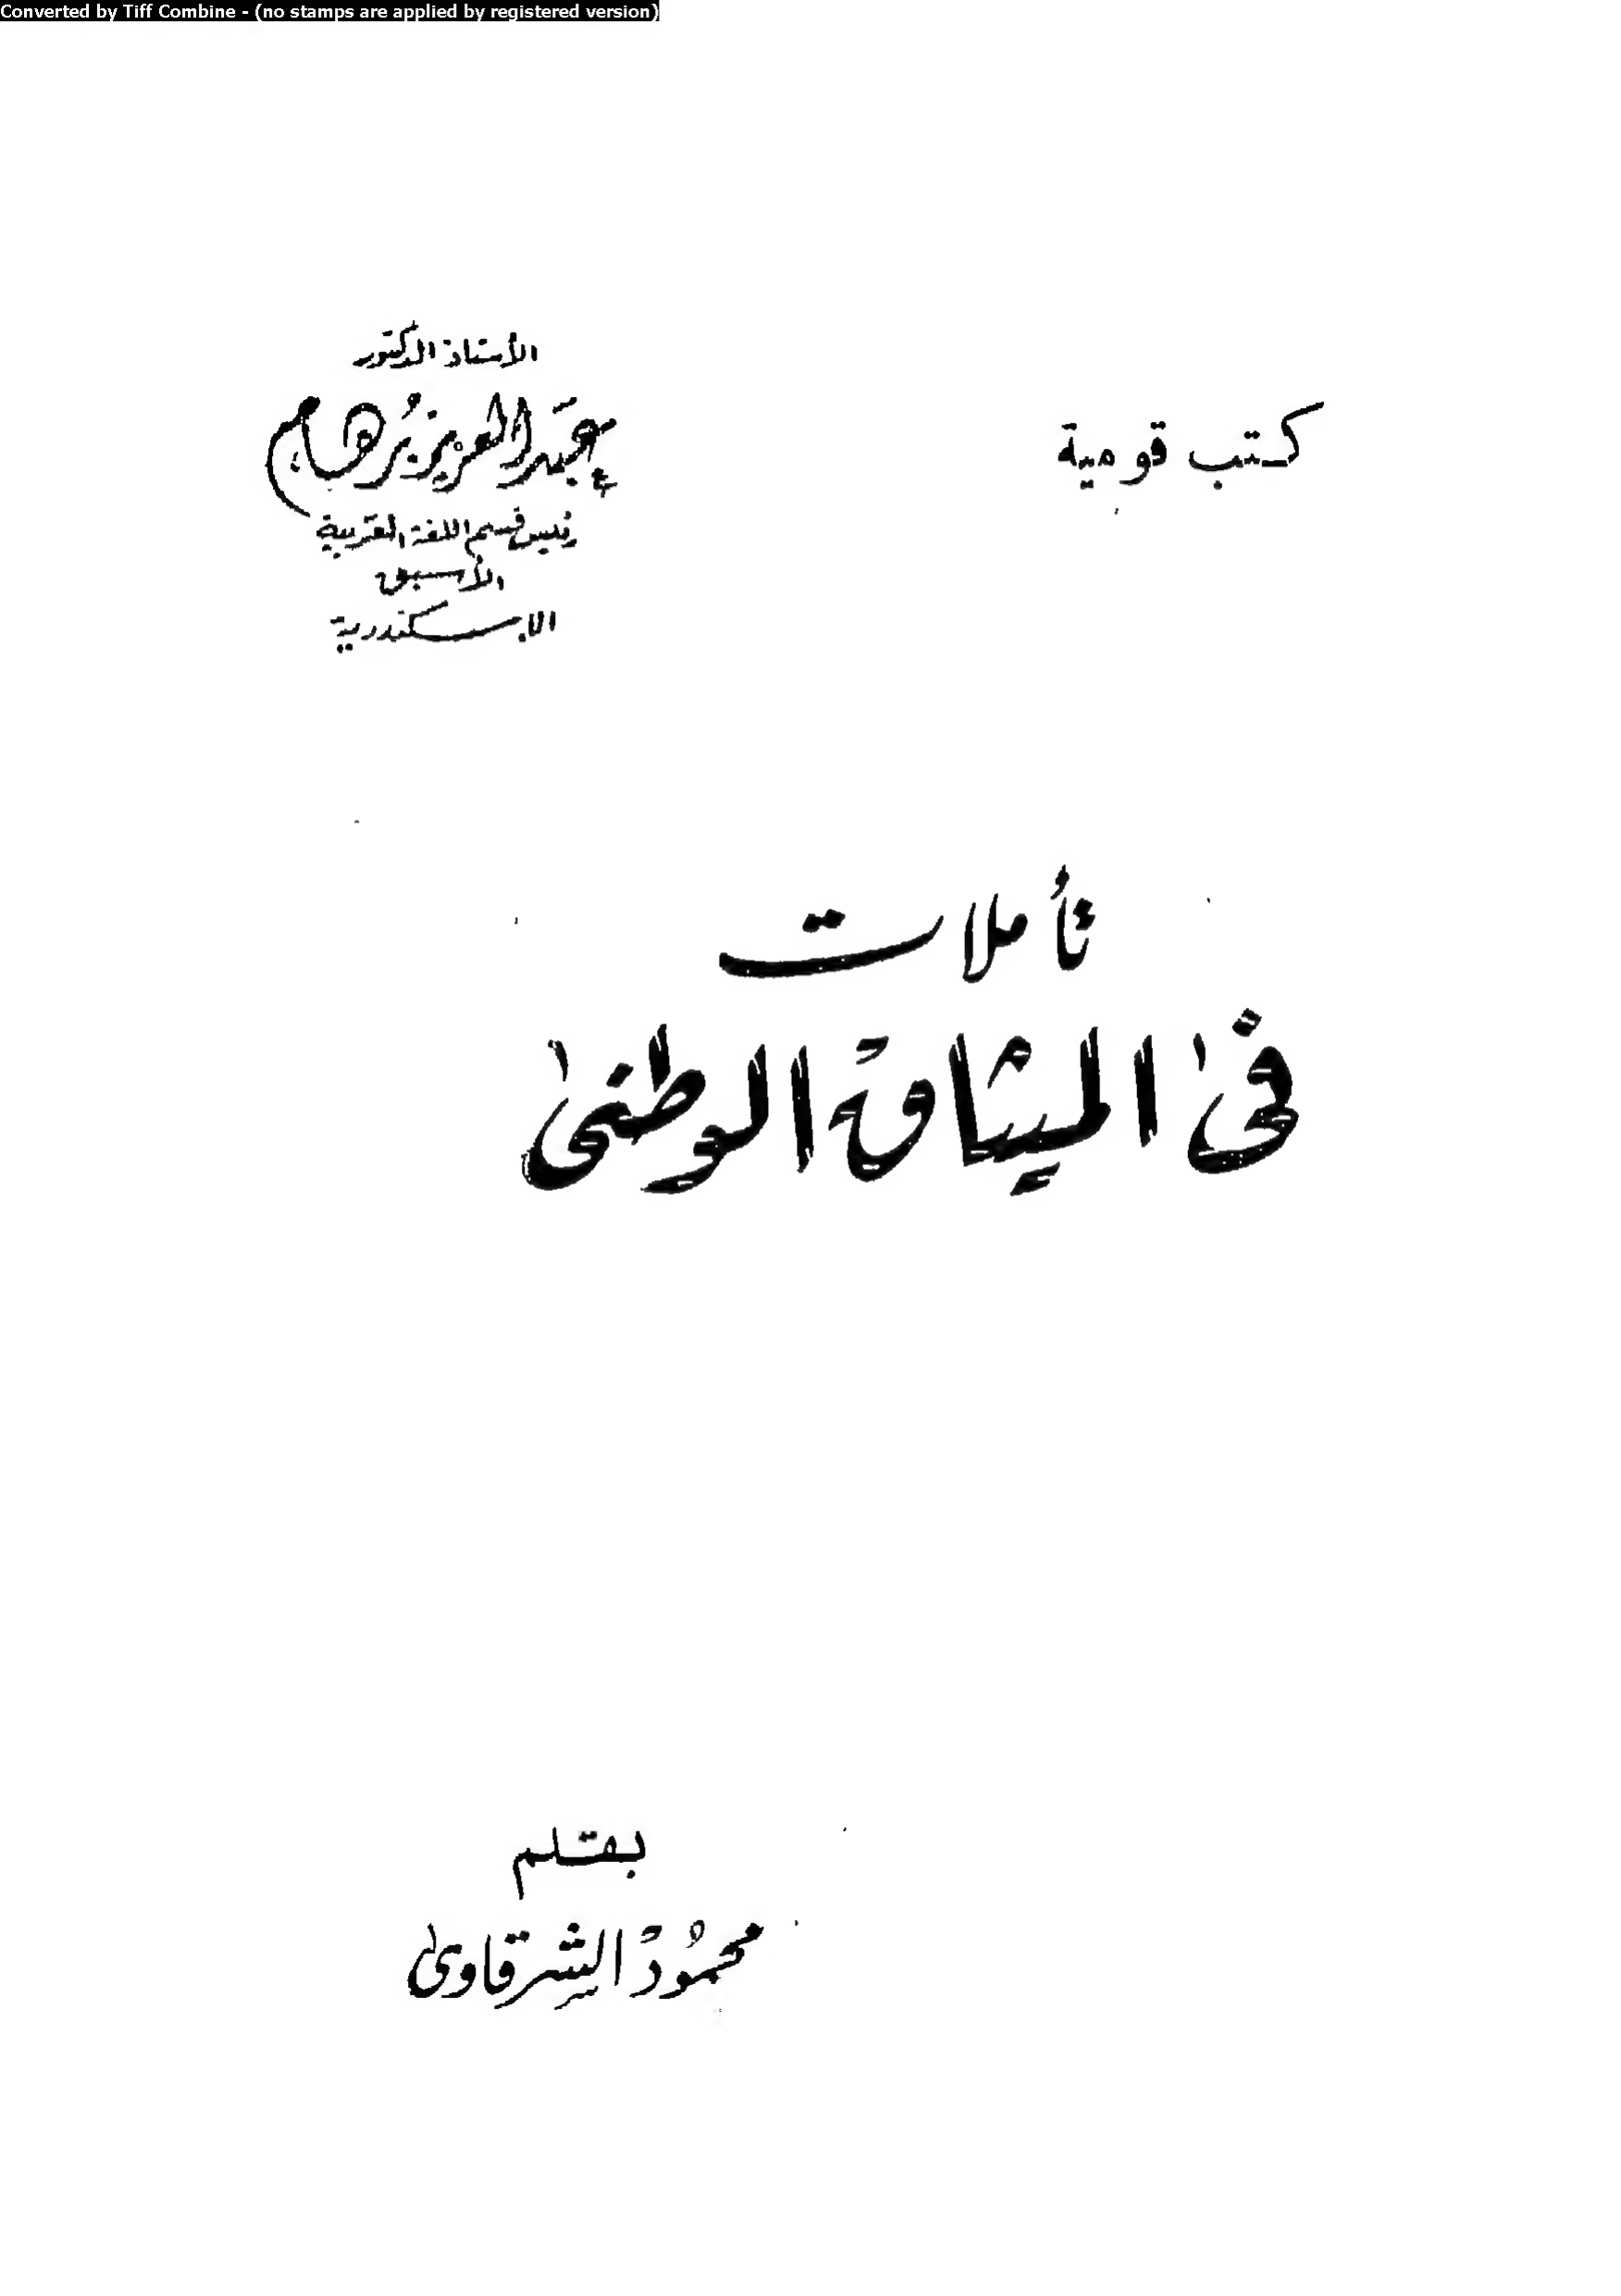 Converted by Tiff Combine - (no stamps are applied by registered version)
كتب قومية
الأستاذ الدكتور
عبد العزيز برهام
رئيس قسم اللغة العربية
الأسبق
الاسكندرية
تأملات
فى الميثاق الوطنى
بقلم
محمود الشرقاوى